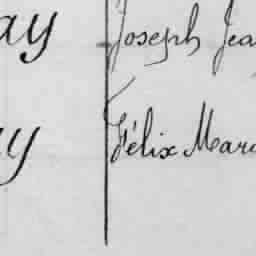 ay Joseph Jea
y Félix Marc